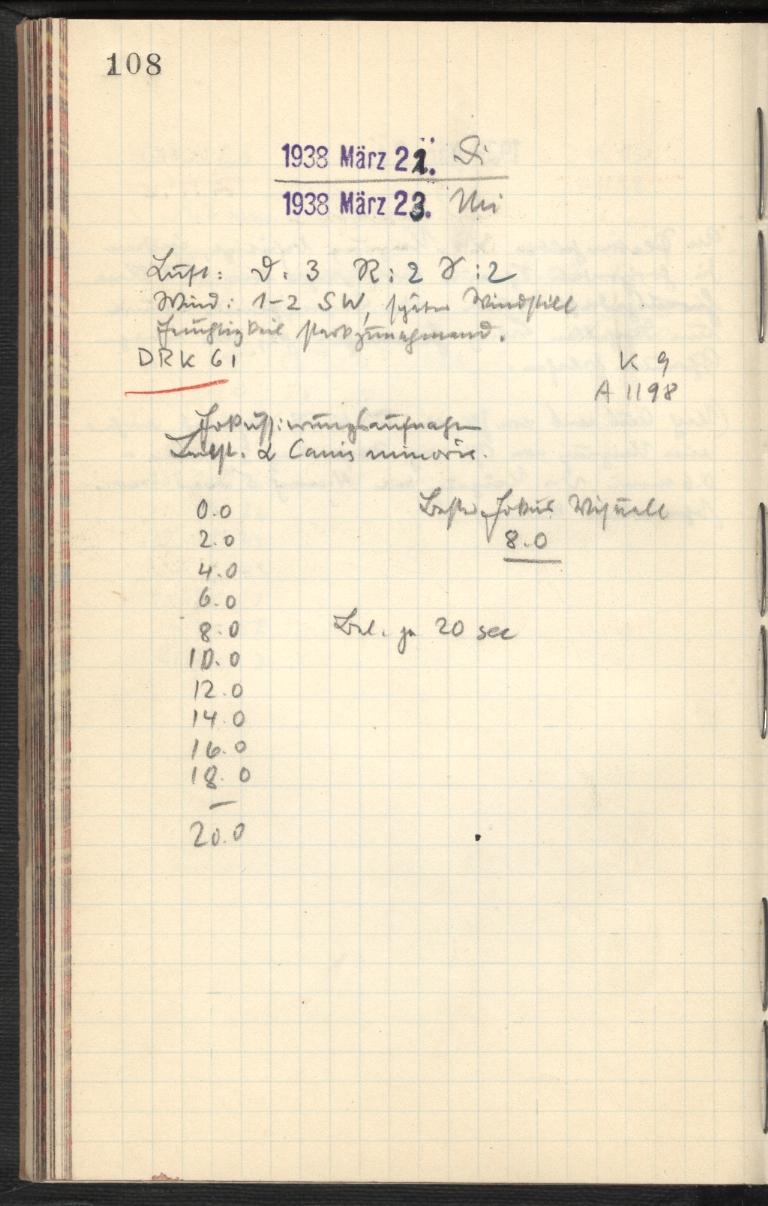 108
1938 März 22. Di
1938 März 23. Mi
Luft: D: 3 R: 2 V: 2
Wind: 1-2 SW, später Windstill
Feuchtigkeit stark zunehmend.
DRK 61 K 9
A 1198
Fokussierungsaufnahm
α Canis minoris.
0.0 Bester Fokus Visuell
2.0 8.0
4.0
6.0
8.0 Bel. je 20 sec
10.0
12.0
14.0
16.0
18.0
—
20.0